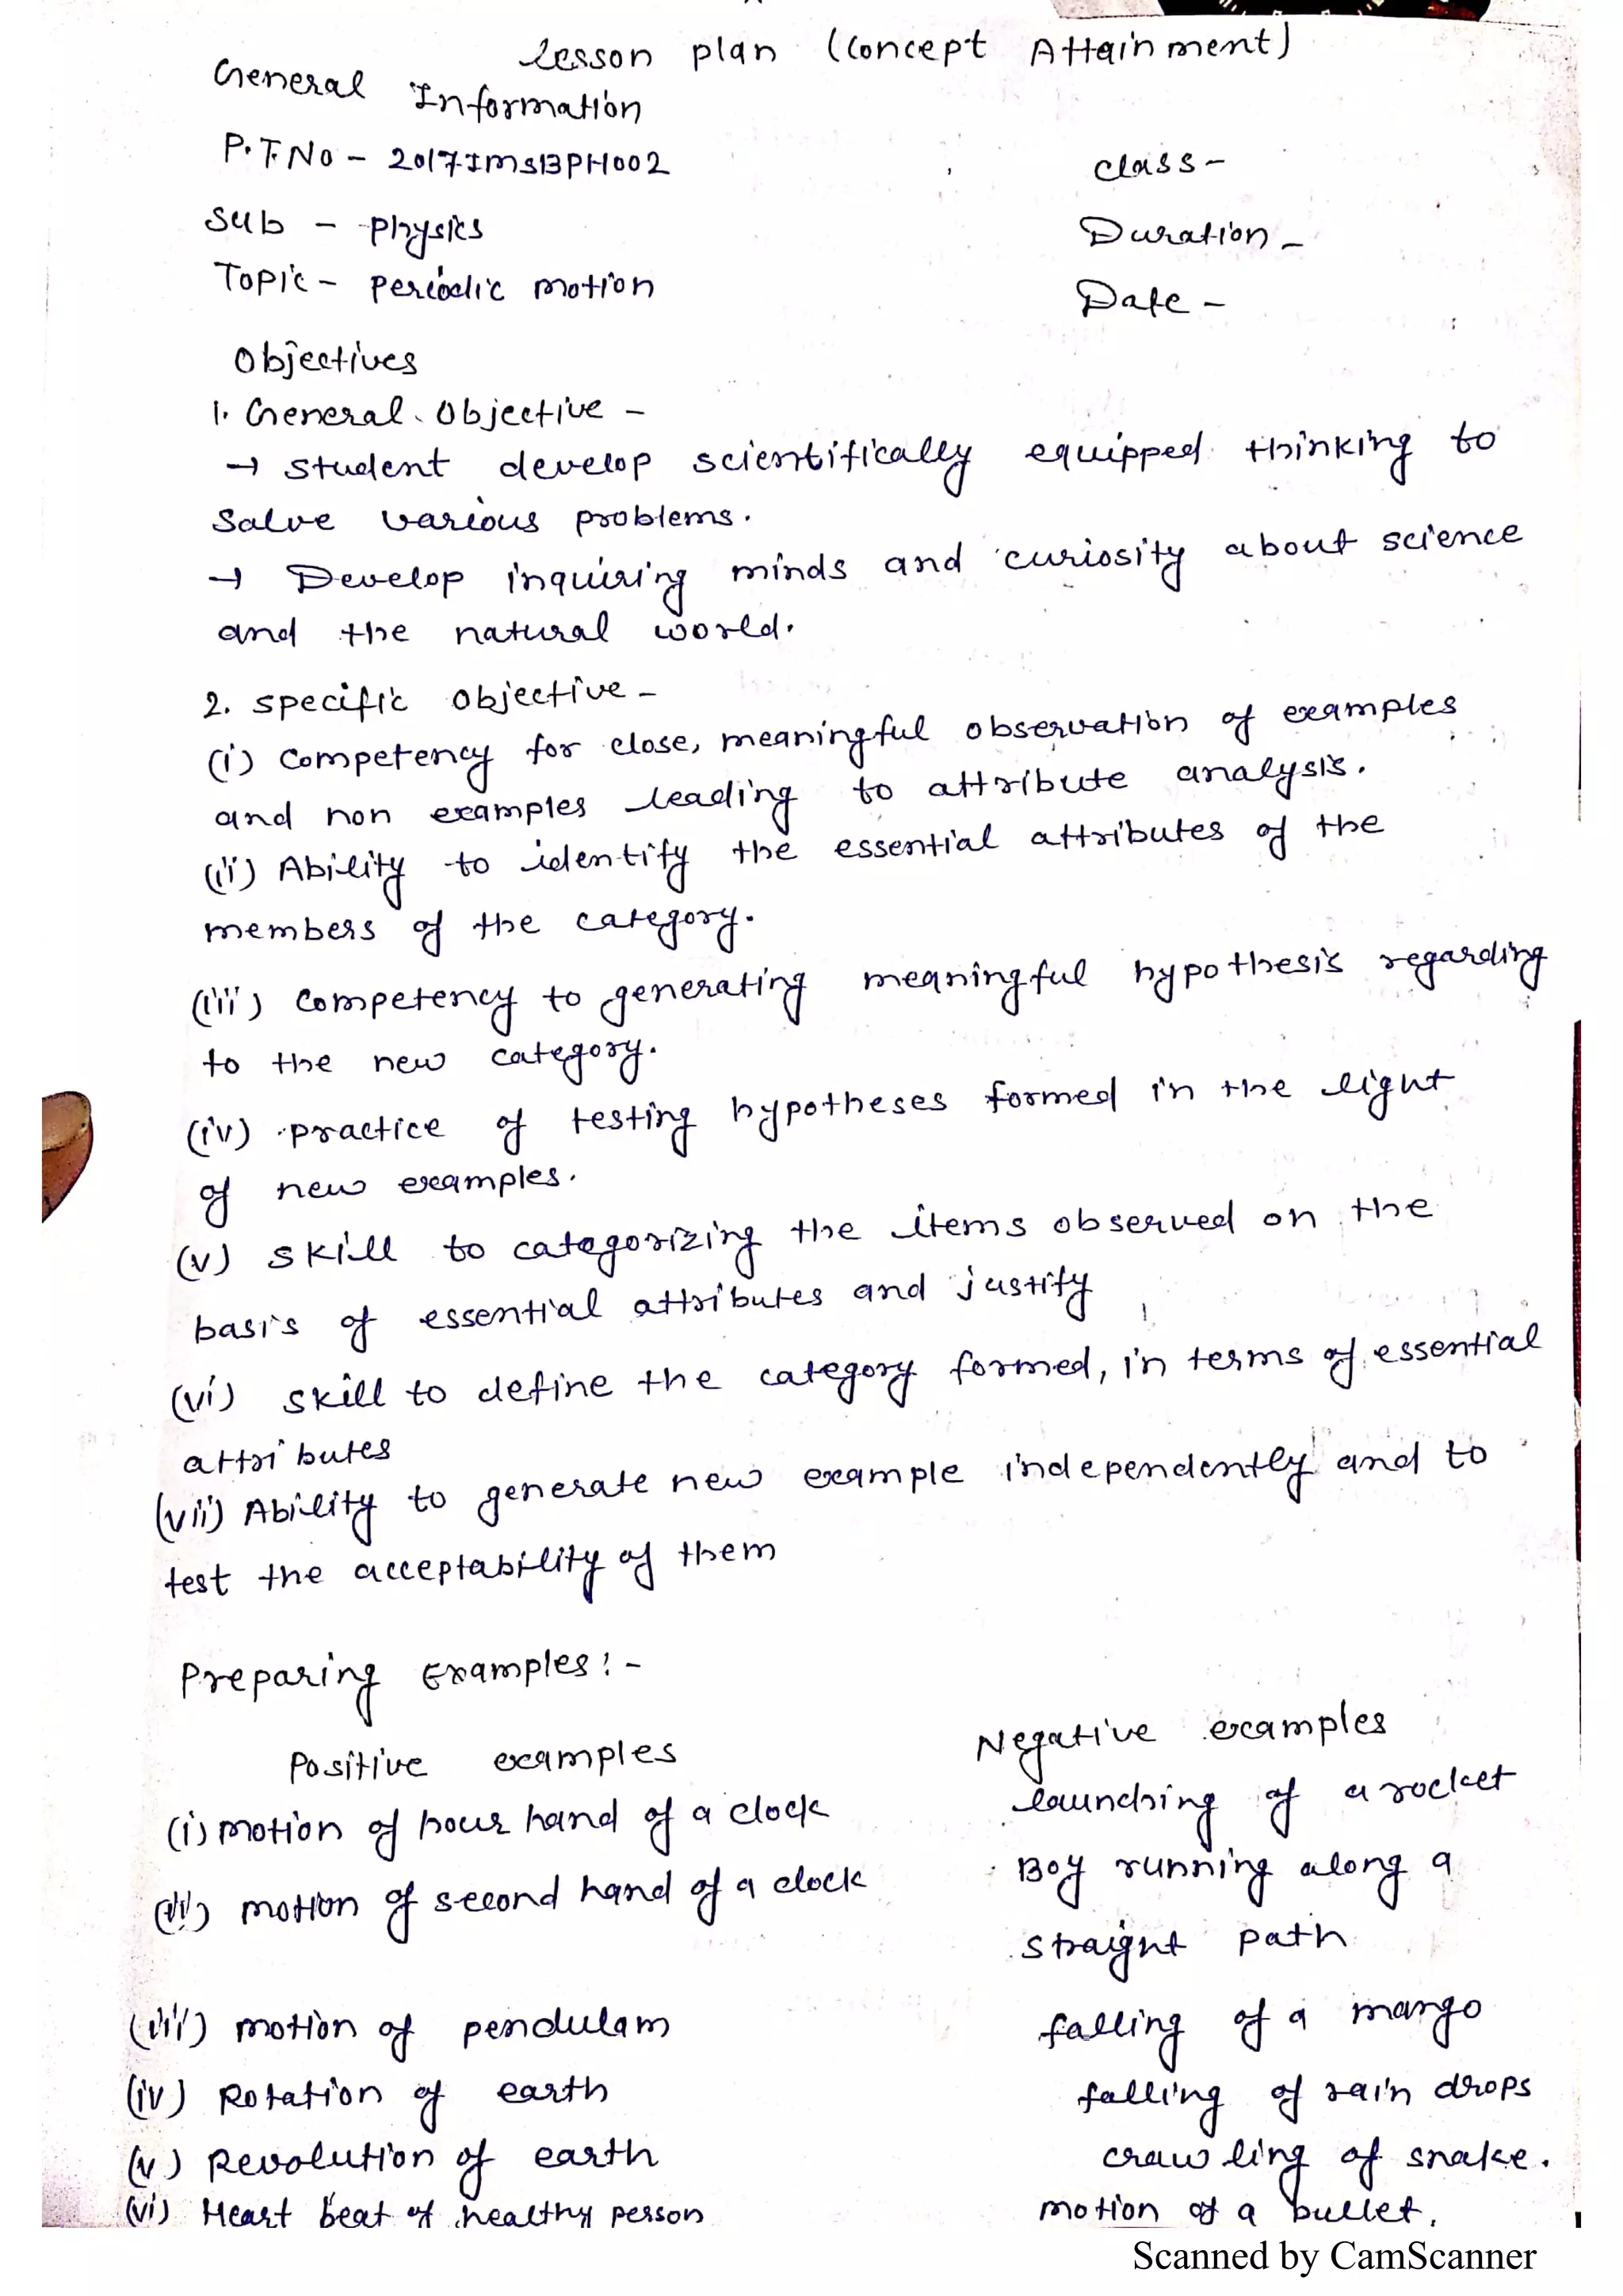 Lesson plan (Concept Attainment)
General Information
P.T.No - 2017IMSBPH002
Class -
Sub - Physics
Duration -
Topic - Periodic motion
Date -
Objectives
1. General Objective -
→ Student develop scientifically equipped thinking to
Salve various problems.
→ Develop inquiring minds and curiosity about science
and the natural world.
2. Specific objective -
(i) Competency for close, meaningful observation of examples
and non examples leading to attribute analysis.
(ii) Ability to identify the essential attributes of the
members of the category.
(iii) Competency to generating meaningful hypothesis regarding
to the new category.
(iv) practice of testing hypotheses formed in the light
of new examples.
(v) skill to categorizing the items observed on the
basis of essential attributes and justify
(vi) skill to define the category formed, in terms of essential
attributes
(vii) Ability to generate new example independently and to
test the acceptability of them
Preparing Examples: -
Positive examples
Negative examples
(i) motion of hour hand of a clock
launching of a rocket
(ii) motion of second hand of a clock
Boy running along a
straight path
(iii) motion of pendulam
falling of a mango
(iv) Rotation of earth
falling of rain drops
(v) Revolution of earth
crawling of snake.
(vi) Heart beat of healthy person
motion of a bullet.
Scanned by CamScanner